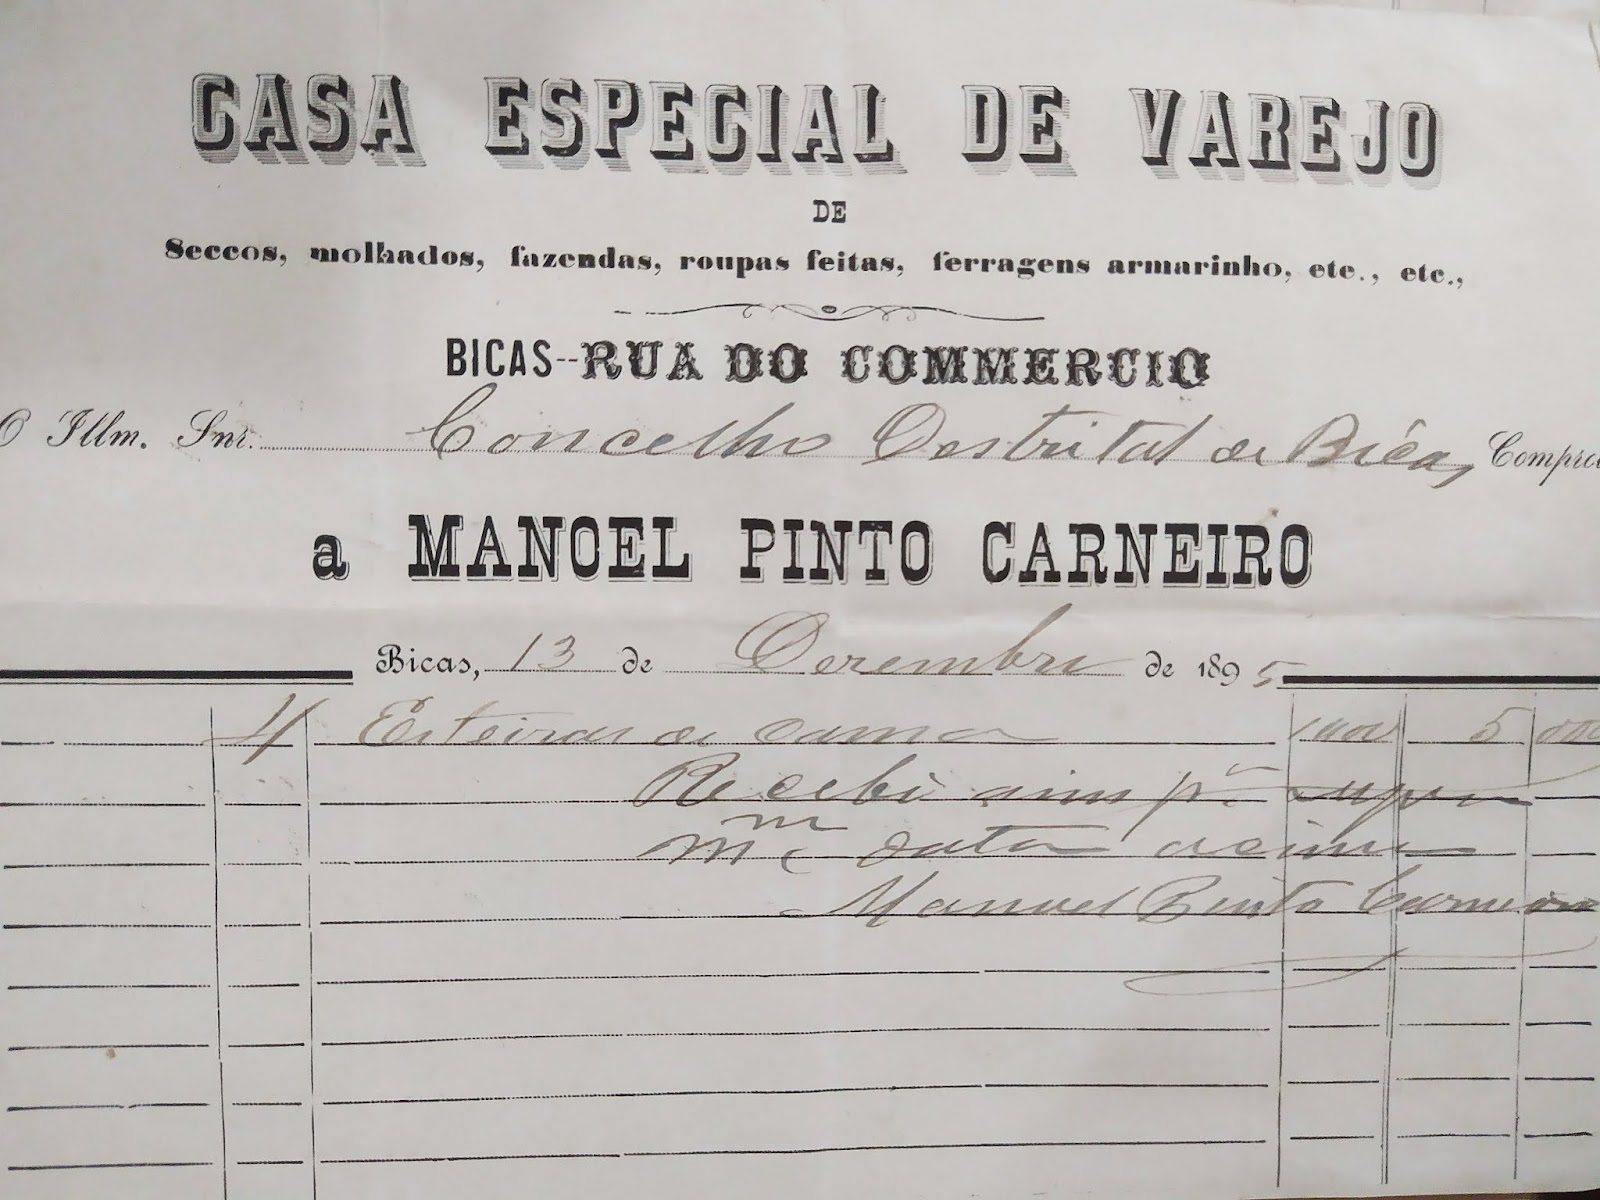 CASA ESPECIAL DE VAREJO
DE
Seccos, molhados, fazendas, roupas feitas, ferragens armarinho, etc., etc.,
BICAS--RUA DO COMMERCIO
O Illm. Snr. Concelho Destrital de Bicas, Comprou
a MANOEL PINTO CARNEIRO
Bicas, 13 de Dezembro de 1895
4 Esteiras de cama 5 000
Recebi
data acima
Manoel Pinto Carneiro